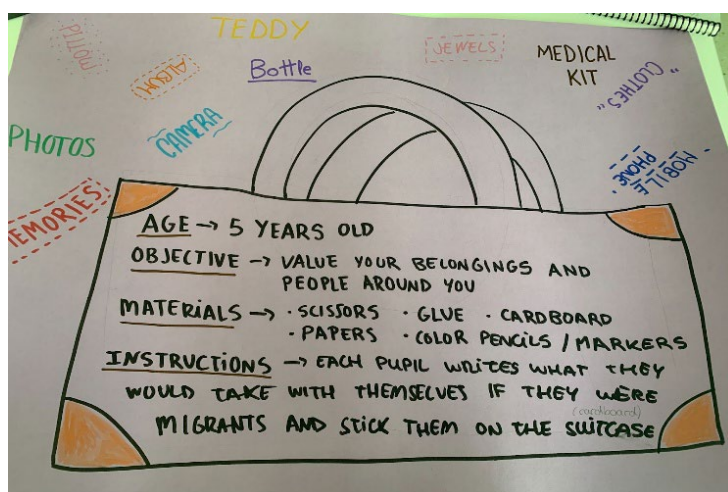 TEDDY
Bottle
JEWELS
MEDICAL
KIT
"CLOTHES"
ALBUM
CAMERA
PHOTOS
MOBILE
PHONE
MEMORIES
AGE → 5 YEARS OLD
OBJECTIVE → VALUE YOUR BELONGINGS AND
PEOPLE AROUND YOU
MATERIALS → · SCISSORS · GLUE · CARDBOARD
· PAPERS · COLOR PENCILS / MARKERS
INSTRUCTIONS → EACH PUPIL WRITES WHAT THEY
WOULD TAKE WITH THEMSELVES IF THEY WERE
(cardboard)
MIGRANTS AND STICK THEM ON THE SUITCASE